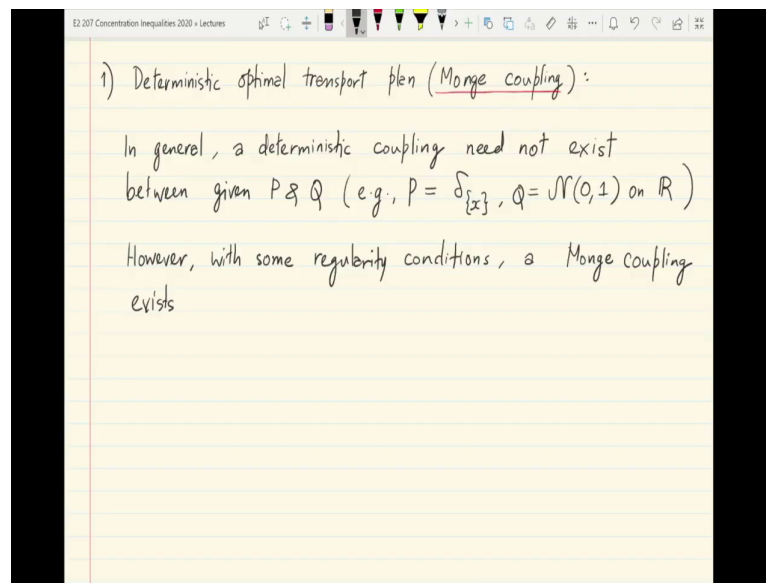 E2 207 Concentration Inequalities 2020 » Lectures
1) Deterministic optimal transport plan (Monge coupling) :
In general, a deterministic coupling need not exist
between given P & Q (e.g., P = δ_{x}, Q = N(0,1) on ℝ)
However, with some regularity conditions, a Monge coupling
exists